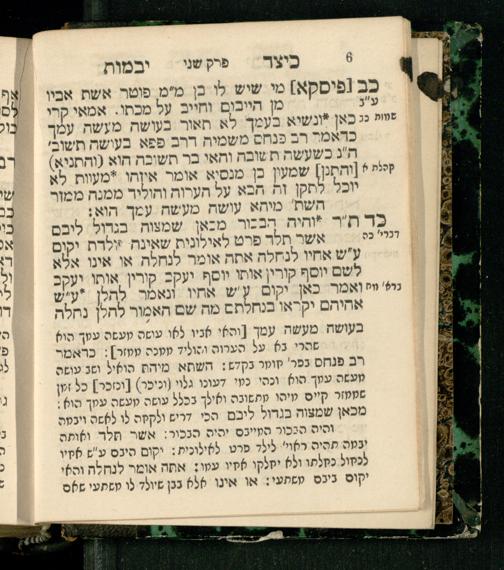 6 כיצד פרק שני יבמות
כב [פיסקא] מי שיש לו בן מ"מ פוטר אשת אביו
ע"ב מן הייבום וחייב על מכתו. אמאי קרי
שמות כב כאן *ונשיא בעמך לא תאור בעושה מעשה עמך
כדאמר רב פנחם משמיה דרב פפא בעושה תשוב'
ה"נ כשעשה תשובה והאי בר תשובה הוא (והתניא)
קהלת א [והתנן] שמעון בן מנסיא אומר איזהו *מעוות לא
יוכל לתקן זה הבא על הערוה והוליד ממנה ממזר
השת' מיהא עושה מעשה עמך הוא:
כד ת"ר *והיה הבכור מכאן שמצוה בגדול ליבם
דברי' כה אשר תלד פרט לאילונית שאינה יולדת יקום
ע"ש אחיו לנחלה אתה אומר לנחלה או אינו אלא
לשם יוסף קורין אותו יוסף יעקב קורין אותו יעקב
ברא' מח ואמר כאן יקום ע"ש אחיו ונאמר להלן *ע"ש
אחיהם יקראו בנחלתם מה שם האמור להלן נחלה
בעושה מעשה עמך [והאי אביו לאו עושה מעשה עמך הוא
שהרי בא על הערוה והוליד ממנה ממזר]: כדאמר
רב פנחם בפר' חומר בקדש: השתא מיהת הואיל ושב עושה
מעשה עמך הוא וכהי כמי דעונו גלוי (וניכר) [ונזכר] כל זמן
שממזר קיים מיהו מתשובה ואילך בכלל עושה מעשה עמך הוא:
מכאן שמצוה בגדול ליבם הכי דריש ולקחה לו לאשה ויבמה
והיה הבכור המייבם יהיה הבכור: אשר תלד ואותה
יבמה תהיה ראוי' לילד פרט לאילונית: יקום היבם ע"ש אחיו
לנחול נחלתו ולא יחלקו אחיו עמו: אתה אומר לנחלה והאי
יקום ביבם משתעי: או אינו אלא בבן שיולד לו משתעי שאם